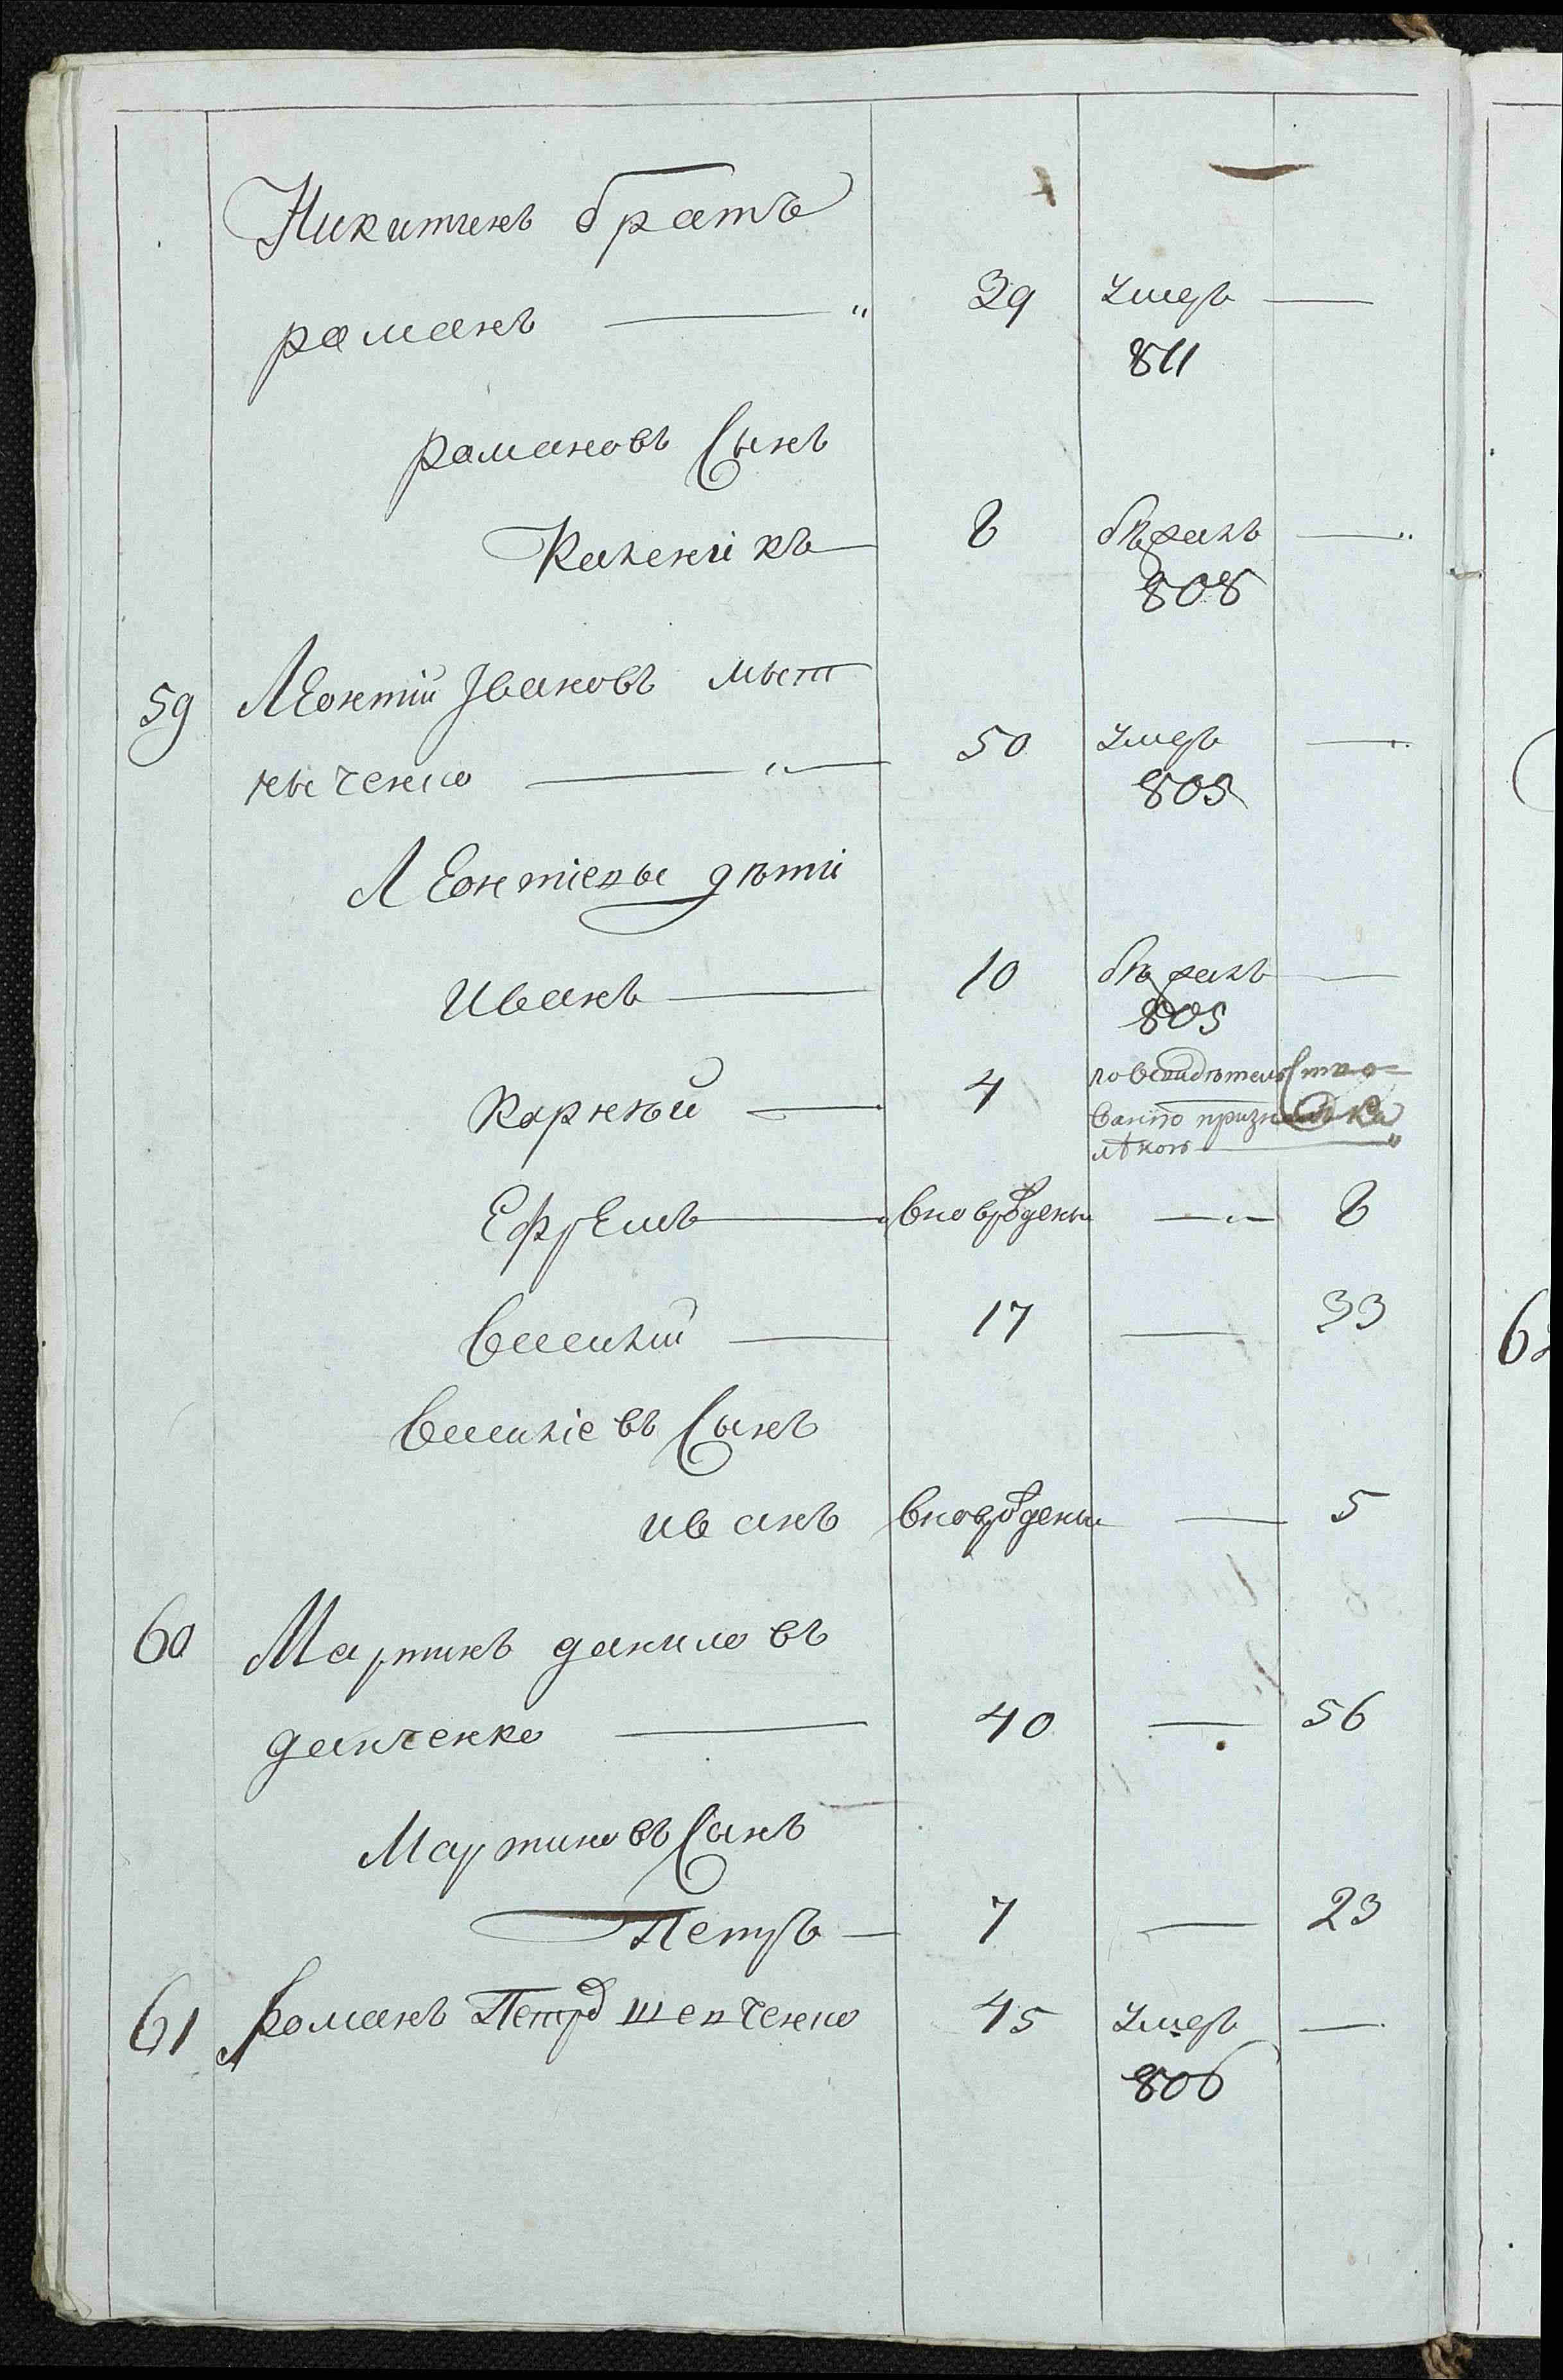 Никитинъ братъ
романъ — 39 умеръ —
811
романовъ сынъ
Каленікъ — 8 бѣжалъ —
808
59 Леонтій Івановъ мѣст
ниченко — 50 умеръ —
805
Леонтіевы дѣти
иванъ — 10 бѣжалъ —
805
Корнѣй — 4 по освидѣтельство
ванію признанъ ка
лѣкою —
Ефремъ — вновьрожденъ — 8
василій — 17 — 33
василіевъ сынъ
иванъ вновьрожденъ — 5
60 Мартинъ даниловъ
данченко — 40 — 56
Мартиновъ сынъ
Петръ — 7 — 23
61 Романъ Петров шевченко 45 умеръ —
806
6